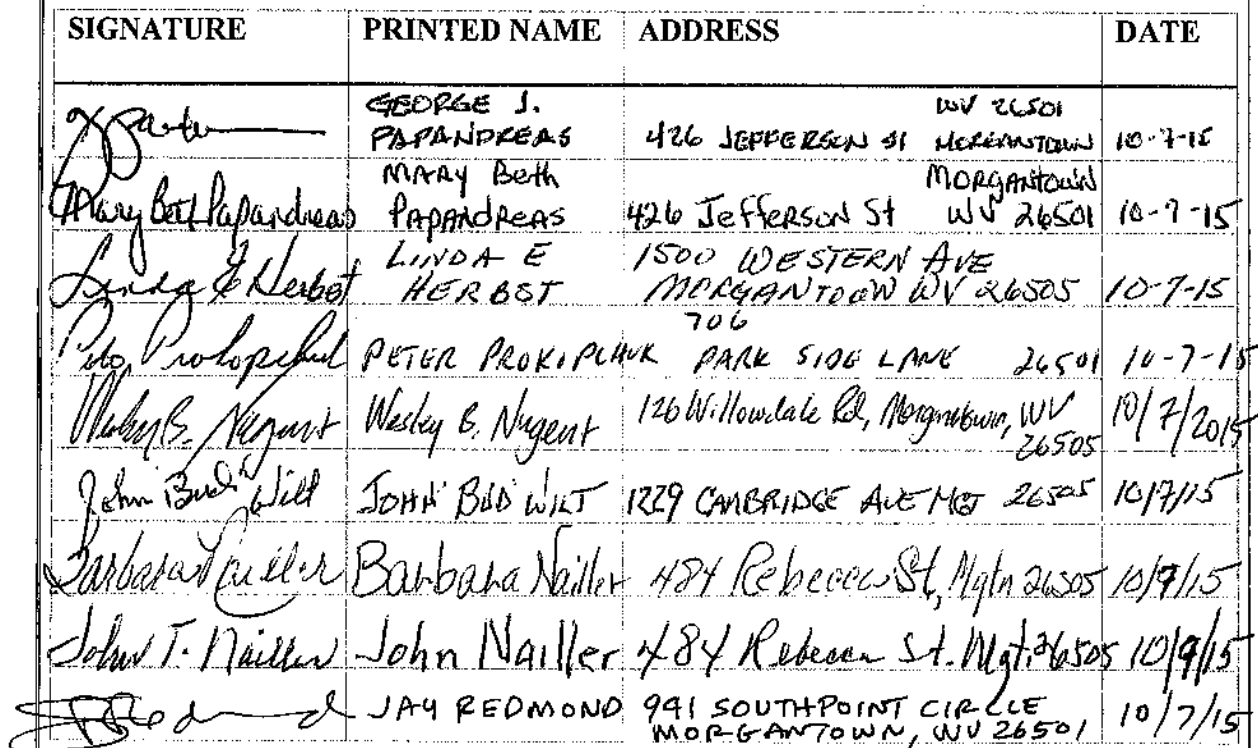 SIGNATURE PRINTED NAME ADDRESS DATE
GEORGE J. WV 26501
PAPANDREAS 426 JEFFERSON ST MORGANTOWN 10-7-15
MARY Beth MORGANTOWN
Mary Beth Papandreas PAPANDREAS 426 Jefferson St WV 26501 10-7-15
LINDA E 1500 WESTERN AVE
Linda E Herbst HERBST MORGANTOWN WV 26505 10-7-15
706
PETER PROKIPCHUK PARK SIDE LANE 26501 10-7-15
Wesley B. Nugent Wesley B. Nugent 126 Willowdale Rd, Morgantown, WV 10/7/2015
26505
John "Bud" Wilt JOHN "BUD" WILT 1229 CAMBRIDGE AVE MGT 26505 10/7/15
Barbara Nailler Barbara Nailler 484 Rebecca St, Mgtn 26505 10/9/15
John T. Nailler John Nailler 484 Rebecca St. Mgt. 26505 10/9/15
Redmond JAY REDMOND 991 SOUTHPOINT CIRCLE
MORGANTOWN, WV 26501 10/7/15